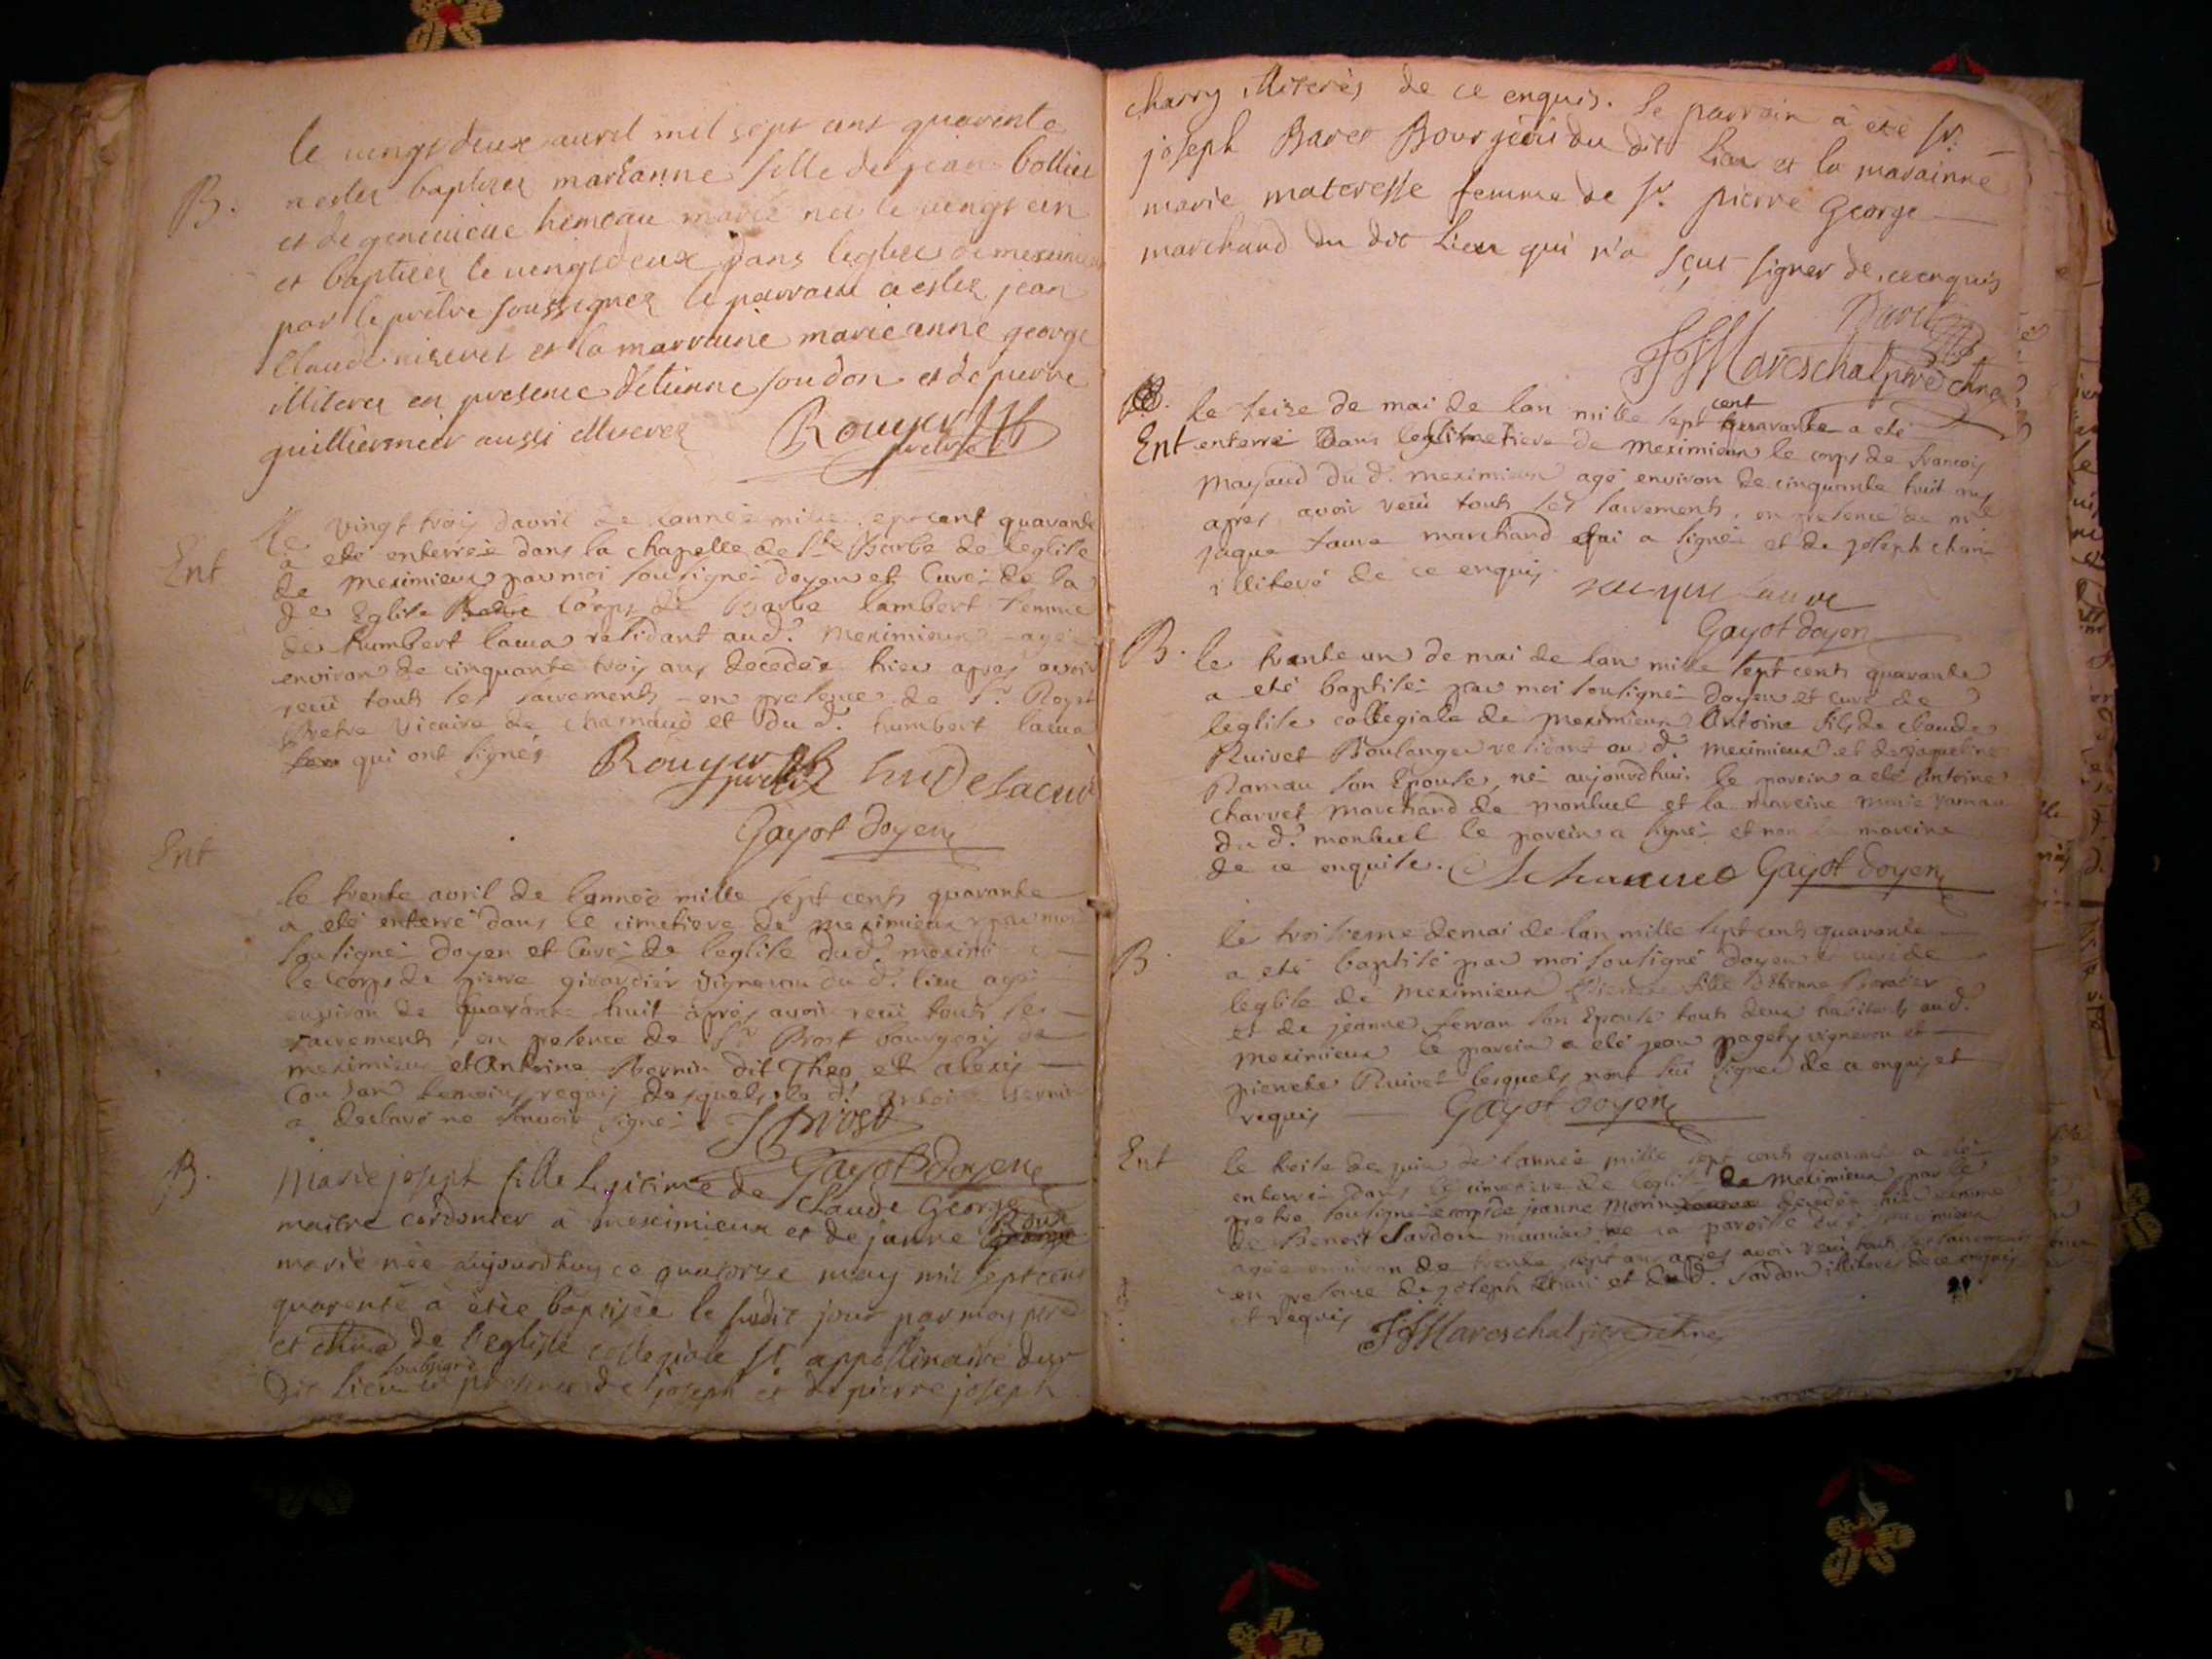 le vingtdeux avril mil sept cent quarente
B. a estez baptizez marianne fille de jean bollier
et de genevieve hemeau marié nee le vingt un
et baptizez le vingtdeux dans leglise de meximieux
par le pretre soussignez le parrain a estez jean
Claude et la marraine marie anne george
illiterez en presence detienne soudon et de pierre
guilliermier aussi illiterez Rouyer
pretre
Le vingt trois davril de lannee mille sept cent quarante
Ent a eté enterreé dans la chapelle de Ste Barbe de leglise
de Meximieux par moi sousigné doyen et Curé de la
de Eglise le Corps de Barbe lambert femme
de humbert lacua residant aud. Meximieux ageé
environ de cinquante trois ans decedeé hier apres avoir
reçû touts les sacrements en presence de Sr Royer
Pretre Vicaire de Charnaud et du d. humbert lacua
qui ont signés Rouyer
pretre
Gayot doyen
Ent
le trente avril de lanneé mille sept cents quarante
a eté enterré dans le cimetiere de Meximieux par moi
sousigné doyen et Curé de leglise dud. meximieux
le corps de pierre girardier Vigneron du d. lieu agé
environ de quarante huit apres avoir reçû touts les
sacrements, en presence de Sr Prost bourgeois de
meximieux et Antoine Bernin dit Theo et alexis
temoins requis desquels le d. Antoine Bernin
a declaré ne sauvoir signer JProst
Gayot doyen
B. Marie joseph fille Legitime de Claude George
maitre cordonier à meximieux et de janne Roux
marié née aujourdhuy ce quatorze may mil sept cent
quarente à étée baptisée le sudit jour par moy pred
et de l'eglise collegiale St appollinaire du
soubsigné
Dit lieu en presence de joseph et de pierre joseph
charry illiterés de ce enquis. le parrain à été Sr
joseph Baret Bourgeois du dit Lieu et la marainne
marie materesse femme de Sr. pierre George
marchand du dit Lieu qui n'a sçut signer de ce enquis
Baret
JFMareschal
cent
le seize de mai de lan mille sept quarante a eté
Ent enterré Dans le cimetiere de Meximieux le corps de francois
Mayaud du d. Meximieux agé environ de cinquante huit ans
apres avoir reçû touts les sacrements, en presence de mre
jaque faure marchand qui a signé et de joseph chari
illiteré de ce enquis
Gayot doyen
B. le trante un de mai de lan mille sept cents quarante
a eté baptisé par moi sousigné doyen et curé de
leglise collegiale de Meximieux Antoine fils de claude
Ruivet Boulanger residant au d. Meximieux et de jaqueline
Ramau son Epouse, né aujourdhui le parein a eté Antoine
Charvet Marchand de monluel et la mareine Marie ramau
du d. monluel le parein a signé et non la mareine
de ce enquise. ACharvet Gayot doyen
B le troisieme de mai de lan mille sept cents quarante
a eté baptisé par moi sousigné doyen et curé de
leglise de Meximieux fille Détienne
et de jeanne ferran son Epouse touts deux habitants aud.
Meximieux le parein a eté jean pagety vigneron et
pierrete Ruivet lesquels n'ont sû signer de ce enquis et
requis Gayot doyen
Ent le treise de juin de lanneé mille sept cents quarante a eté
enterreé dans le cimetiere de leglise de Meximieux par le
pretre sousigné le corps de jeanne Morin decedeé hier femme
de Benoit Sardon munier de la paroisse du d. Meximieux
ageé environ de trente sept ans apres avoir reçû touts les sacrements
en presence de joseph chari et du d. Sardon illiteres de ce enquis
et requis
JFMareschal